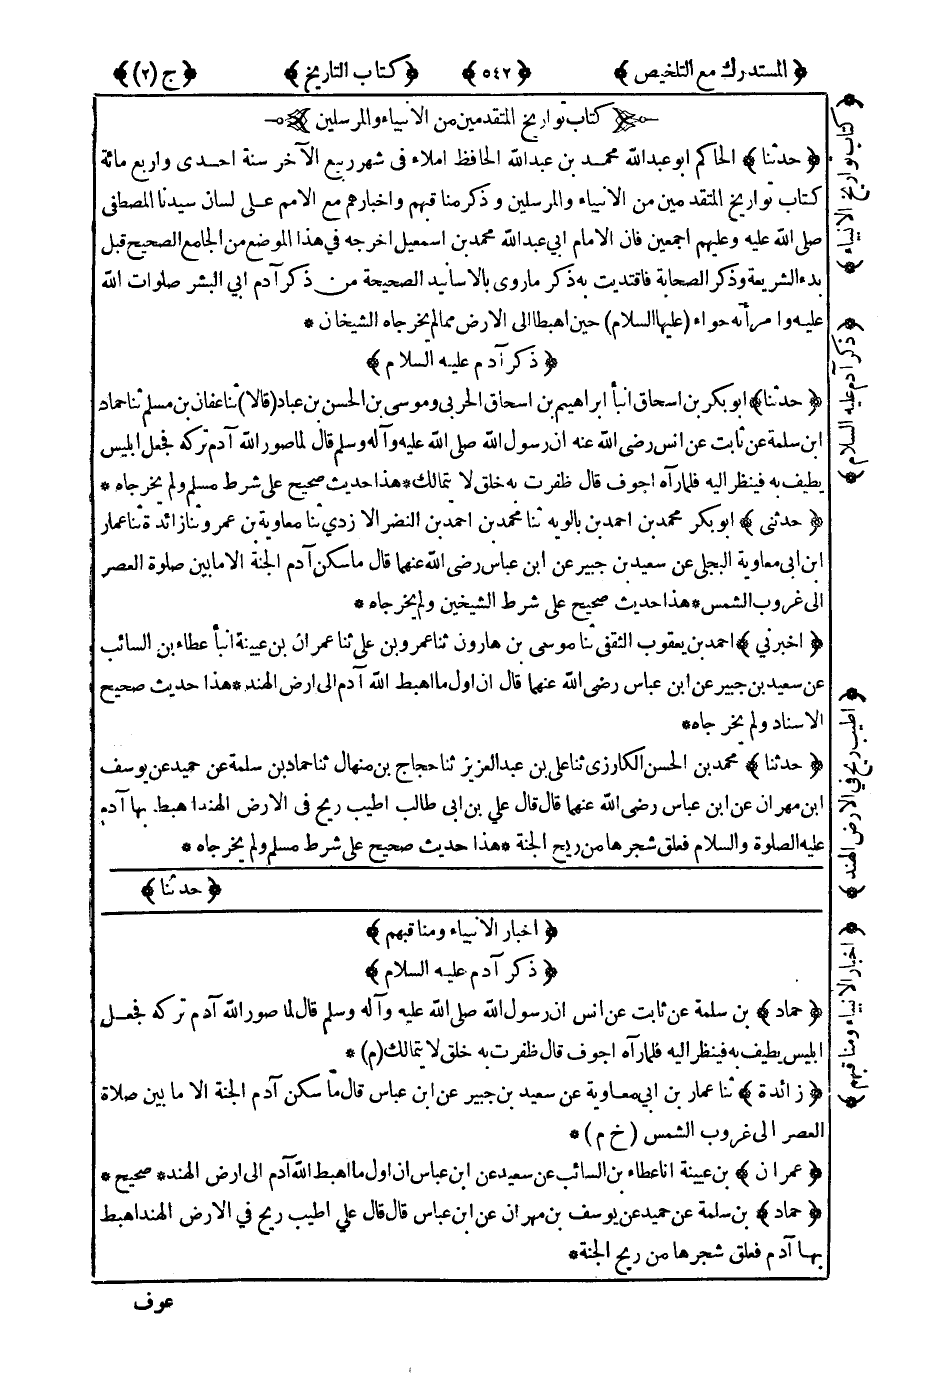 ﴿ المستدرك مع التلخيص ﴾ ﴿ ٥٤٢ ﴾ ﴿ كتاب التاريخ ﴾ ﴿ ج (٢) ﴾
كتاب تواريخ المتقدمين من الانبياء والمرسلين
﴿ حدثنا ﴾ الحاكم ابو عبدالله محمد بن عبدالله الحافظ املاء فى شهر ربيع الآخر سنة احدى واربع مائة
كتاب تواريخ المتقدمين من الانبياء والمرسلين وذكر مناقبهم واخبارهم مع الامم على لسان سيدنا المصطفى
صلى الله عليه وعليهم اجمعين فان الامام ابي عبدالله محمد بن اسمعيل اخرجه في هذا الموضع من الجامع الصحيح قبل
بدء الشريعة وذكر الصحابة فاقتديت به ذكر ماروى بالاسانيد الصحيحة من ذكر آدم ابي البشر صلوات الله
عليه وامرأته حواء (عليها السلام) حين اهبطا الى الارض ممالم يخرجاه الشيخان *
﴿ ذكر آدم عليه السلام ﴾
﴿ حدثنا ﴾ ابو بكر بن اسحاق انبأ ابراهيم بن اسحاق الحربى وموسى بن الحسن بن عباد (قالا) ثنا عفان بن مسلم ثنا حماد
ابن سلمة عن ثابت عن انس رضى الله عنه ان رسول الله صلى الله عليه وآله وسلم قال لما صور الله آدم تركه فجعل ابليس
يطيف به فينظر اليه فلما رآه اجوف قال ظفرت به خلق لا يتمالك * هذا حديث صحيح على شرط مسلم ولم يخرجاه *
﴿ حدثنى ﴾ ابو بكر محمد بن احمد بن بالويه ثنا محمد بن احمد بن النضر الازدي ثنا معاوية بن عمرو ثنا زائدة ثنا عمار
ابن ابى معاوية البجلى عن سعيد بن جبير عن ابن عباس رضى الله عنهما قال ما سكن آدم الجنة الا ما بين صلوة العصر
الى غروب الشمس * هذا حديث صحيح على شرط الشيخين ولم يخرجاه *
﴿ اخبرني ﴾ احمد بن يعقوب الثقفى ثنا موسى بن هارون ثنا عمرو بن على ثنا عمران بن عيينة انبأ عطاء بن السائب
عن سعيد بن جبير عن ابن عباس رضى الله عنهما قال ان اول ما اهبط الله آدم الى ارض الهند * هذا حديث صحيح
الاسناد ولم يخرجاه *
﴿ حدثنا ﴾ محمد بن الحسن الكارزى ثنا على بن عبد العزيز ثنا حجاج بن منهال ثنا حماد بن سلمة عن حميد عن يوسف
ابن مهران عن ابن عباس رضى الله عنهما قال قال علي بن ابى طالب اطيب ريح فى الارض الهند اهبط بها آدم
عليه الصلوة والسلام فعلق شجرها من ريح الجنة * هذا حديث صحيح على شرط مسلم ولم يخرجاه *
﴿ حدثنا ﴾
﴿ اخبار الانبياء ومناقبهم ﴾
﴿ ذكر آدم عليه السلام ﴾
﴿ حماد ﴾ بن سلمة عن ثابت عن انس ان رسول الله صلى الله عليه وآله وسلم قال لما صور الله آدم تركه فجعل
ابليس يطيف به فينظر اليه فلما رآه اجوف قال ظفرت به خلق لا يتمالك (م) *
﴿ زائدة ﴾ ثنا عمار بن ابي معاوية عن سعيد بن جبير عن ابن عباس قال ما سكن آدم الجنة الا ما بين صلاة
العصر الى غروب الشمس (خ م) *
﴿ عمران ﴾ بن عيينة انا عطاء بن السائب عن سعيد عن ابن عباس ان اول ما اهبط الله آدم الى ارض الهند * صحيح *
﴿ حماد ﴾ بن سلمة عن حميد عن يوسف بن مهران عن ابن عباس قال قال علي اطيب ريح في الارض الهند اهبط
بها آدم فعلق شجرها من ريح الجنة *
عوف
﴿ كتاب تواريخ الانبياء ﴾
﴿ ذكر آدم عليه السلام ﴾
﴿ اطيب ريح في الارض الهند ﴾
﴿ اخبار الانبياء ومناقبهم ﴾